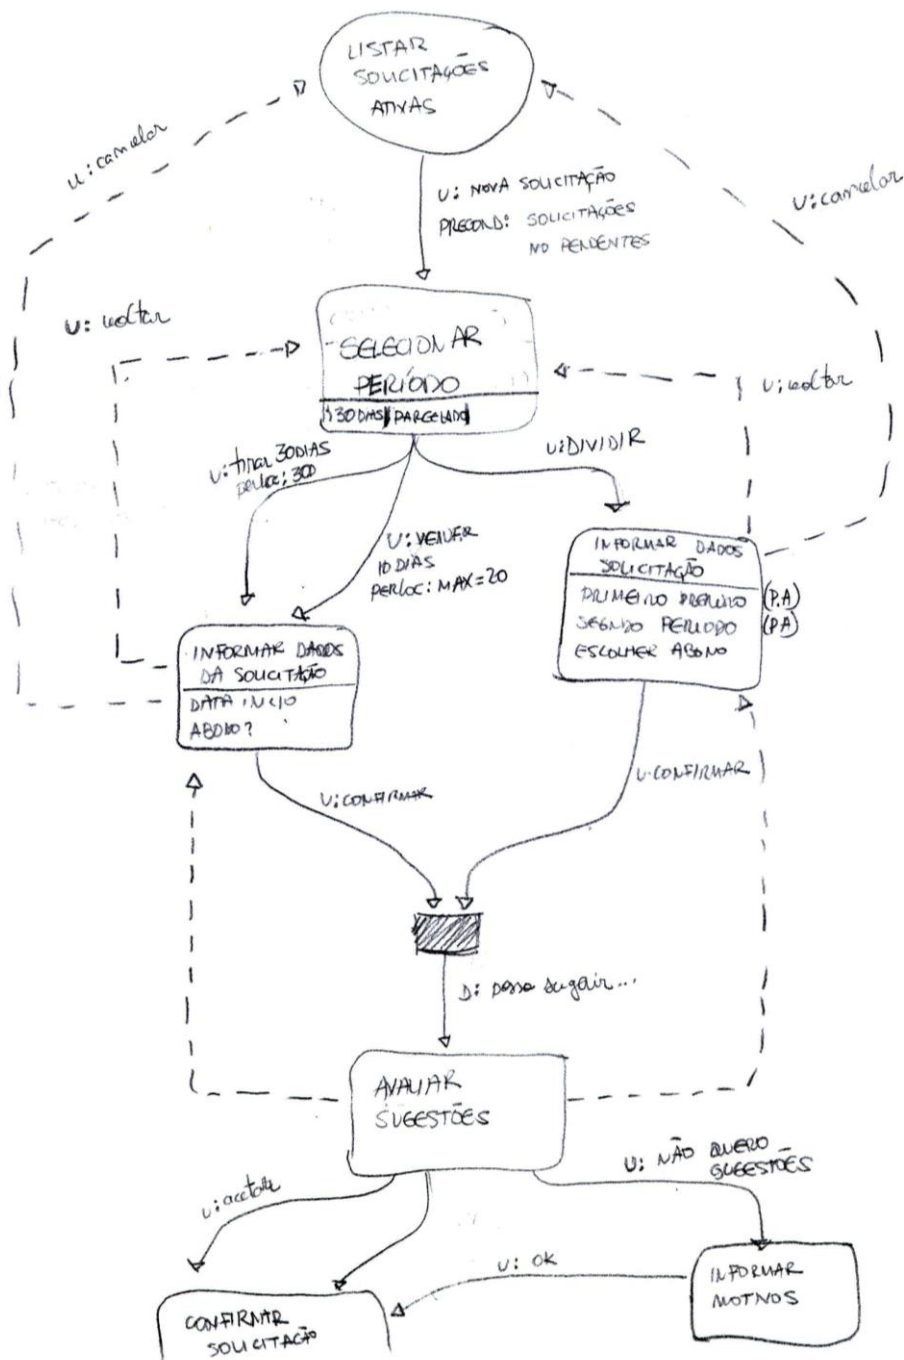 LISTAR
SOLICITAÇÕES
ATIVAS
U: cancelar
U: NOVA SOLICITAÇÃO
PRECOND: SOLICITAÇÕES
NO PENDENTES
U: cancelar
U: voltar
SELECIONAR
PERÍODO
30 DIAS PARCELADO
U: voltar
U: tirar 30 DIAS
perloc: 30
U: DIVIDIR
U: VENDER
10 DIAS
PERLOC: MAX=20
INFORMAR DADOS
SOLICITAÇÃO
PRIMEIRO (P.A)
SEGUNDO PERIODO (PA)
ESCOLHER ABONO
INFORMAR DADOS
DA SOLICITAÇÃO
DATA INICIO
ABONO?
U: CONFIRMAR
U: CONFIRMAR
D: posso sugerir...
AVALIAR
SUGESTÕES
U: NÃO QUERO
SUGESTÕES
U: aceitar
U: OK
INFORMAR
MOTIVOS
CONFIRMAR
SOLICITAÇÃO